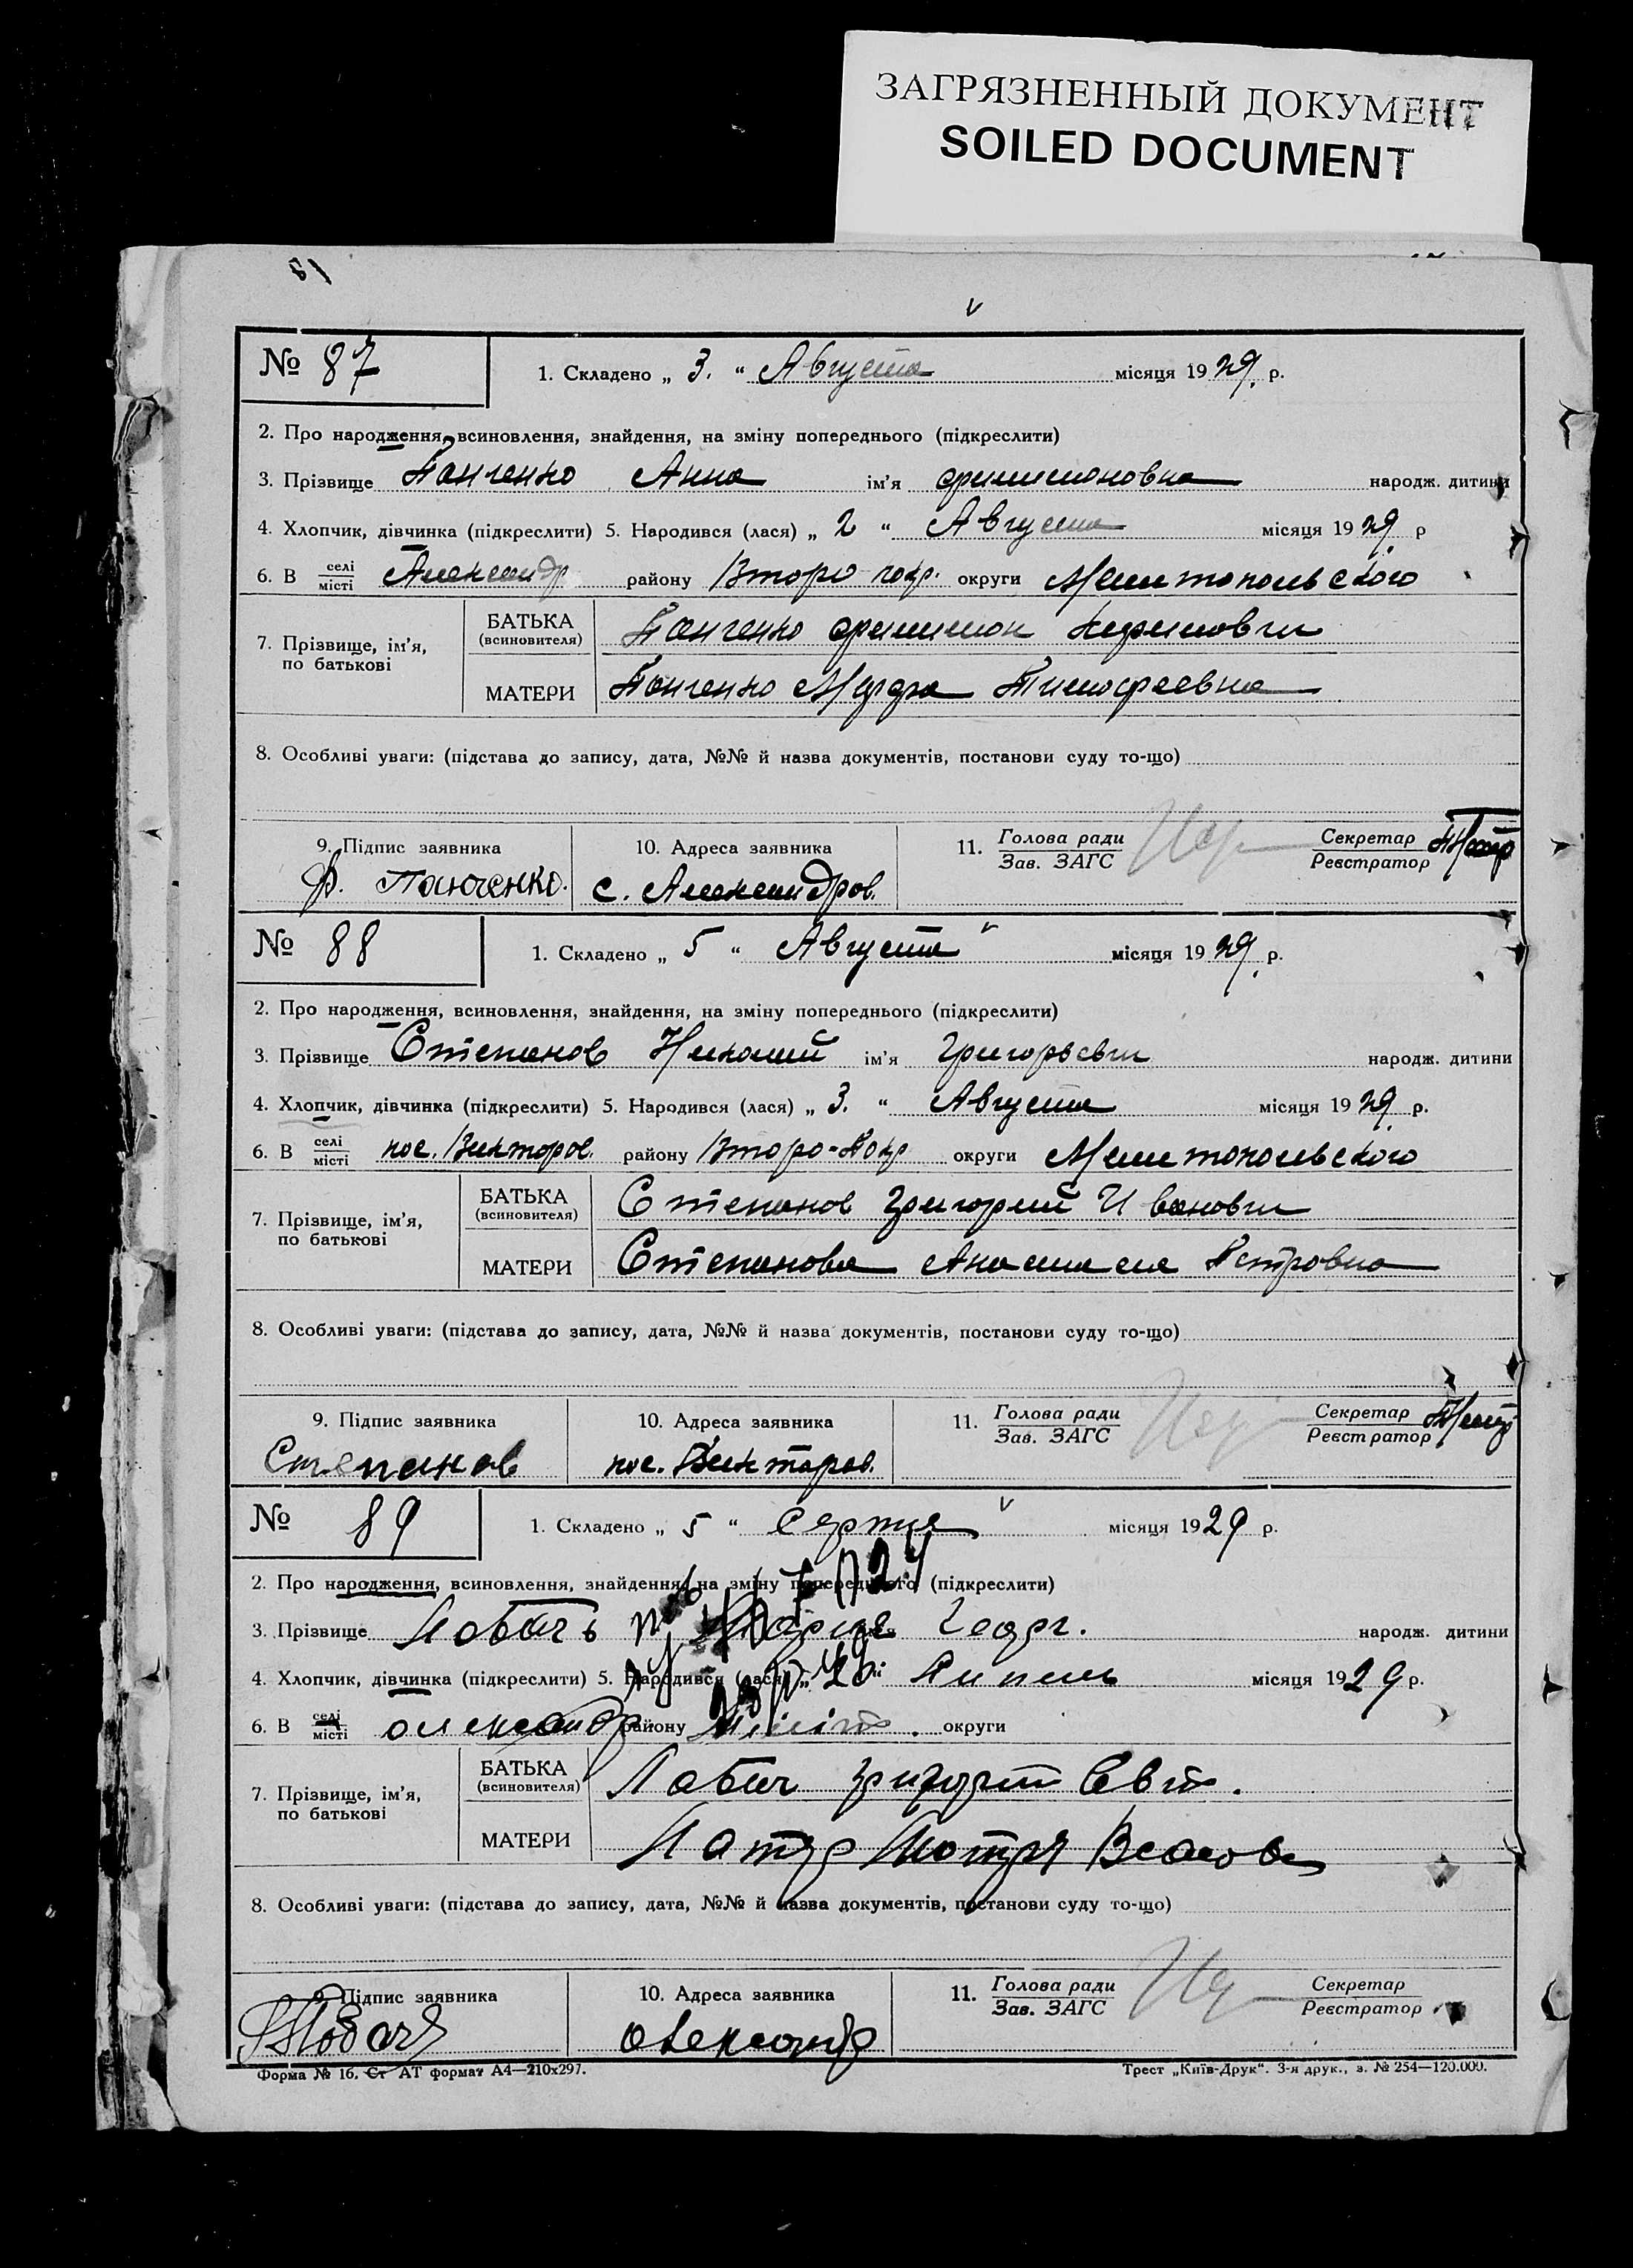 ЗАГРЯЗНЕННЫЙ ДОКУМЕНТ
SOILED DOCUMENT
81
№ 87 1. Складено „ 3. “ Августа місяця 1929. р.
2. Про народження, всиновлення, знайдення, на зміну попереднього (підкреслити)
3. Прізвище Панченко Анна ім'я Филимоновна народж. дитини
4. Хлопчик, дівчинка (підкреслити) 5. Народився (лася) „ 2 “ Августа місяця 1929 р
6. В селі місті Александр району Второ покр. округи Мелитопольского
7. Прізвище, ім'я, по батькові
БАТЬКА (всиновителя) Панченко Филимон
МАТЕРИ Панченко Тимофеевна
8. Особливі уваги: (підстава до запису, дата, №№ й назва документів, постанови суду то-що)
9. Підпис заявника 10. Адреса заявника 11. Голова ради Зав. ЗАГС Секретар Реєстратор
Ф. Панченко. с. Александров.
№ 88 1. Складено „ 5 “ Августа місяця 1929. р.
2. Про народження, всиновлення, знайдення, на зміну попереднього (підкреслити)
3. Прізвище Степанов Николай ім'я Григорьевич народж. дитини
4. Хлопчик, дівчинка (підкреслити) 5. Народився (лася) „ 3. “ Августа місяця 1929. р.
6. В селі місті пос. Викторов. району Второ-Покр округи Мелитопольского
7. Прізвище, ім'я, по батькові
БАТЬКА (всиновителя) Степанов Григорий Иванович
МАТЕРИ Степанова Анастасия Петровна
8. Особливі уваги: (підстава до запису, дата, №№ й назва документів, постанови суду то-що)
9. Підпис заявника 10. Адреса заявника 11. Голова ради Зав. ЗАГС Секретар Реєстратор
Степанов пос. Викторов.
№ 89 1. Складено „ 5 “ Серпня місяця 1929 р.
2. Про народження, всиновлення, знайдення, на зміну попереднього (підкреслити)
3. Прізвище народж. дитини
4. Хлопчик, дівчинка (підкреслити) 5. Народився (лася) Липень місяця 1929 р.
6. В селі місті олександр. району округи
7. Прізвище, ім'я, по батькові
БАТЬКА (всиновителя) Лобач
МАТЕРИ Мотря
8. Особливі уваги: (підстава до запису, дата, №№ й назва документів, постанови суду то-що)
9. Підпис заявника 10. Адреса заявника 11. Голова ради Зав. ЗАГС Секретар Реєстратор
Олександр
Форма № 16. Ст АТ формат А4—210х297. Трест „Київ-Друк“. 3-я друк., з. № 254—120.000.